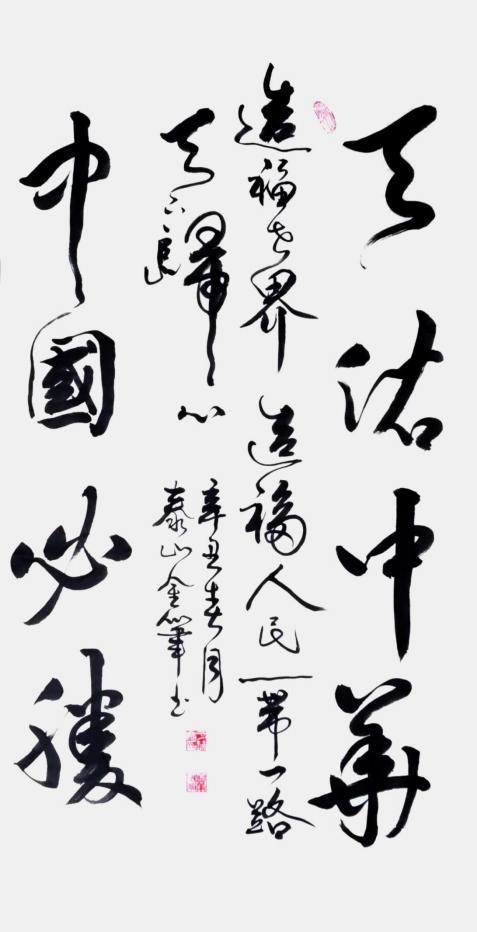 天佑中华
造福世界 造福人民 一带一路
天下归心
中國必勝
辛丑春月
泰山金笔书